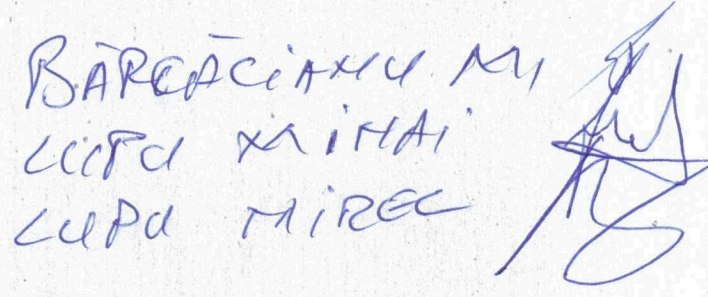 BĂRCĂCIANU M
LUPU MIHAI
LUPU MIREL